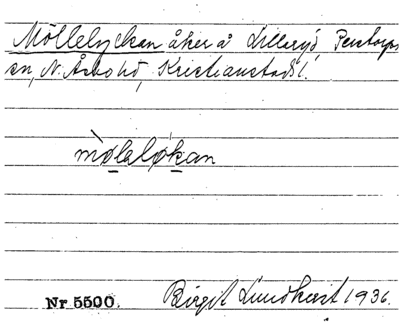 Möllelyckan åker å Lillaryd, Perstorps
sn, N. Åsbohd, Kristianstads l.
mò̤lelø̤kan
Nr 5500.
Birgit Lundkvist 1936.